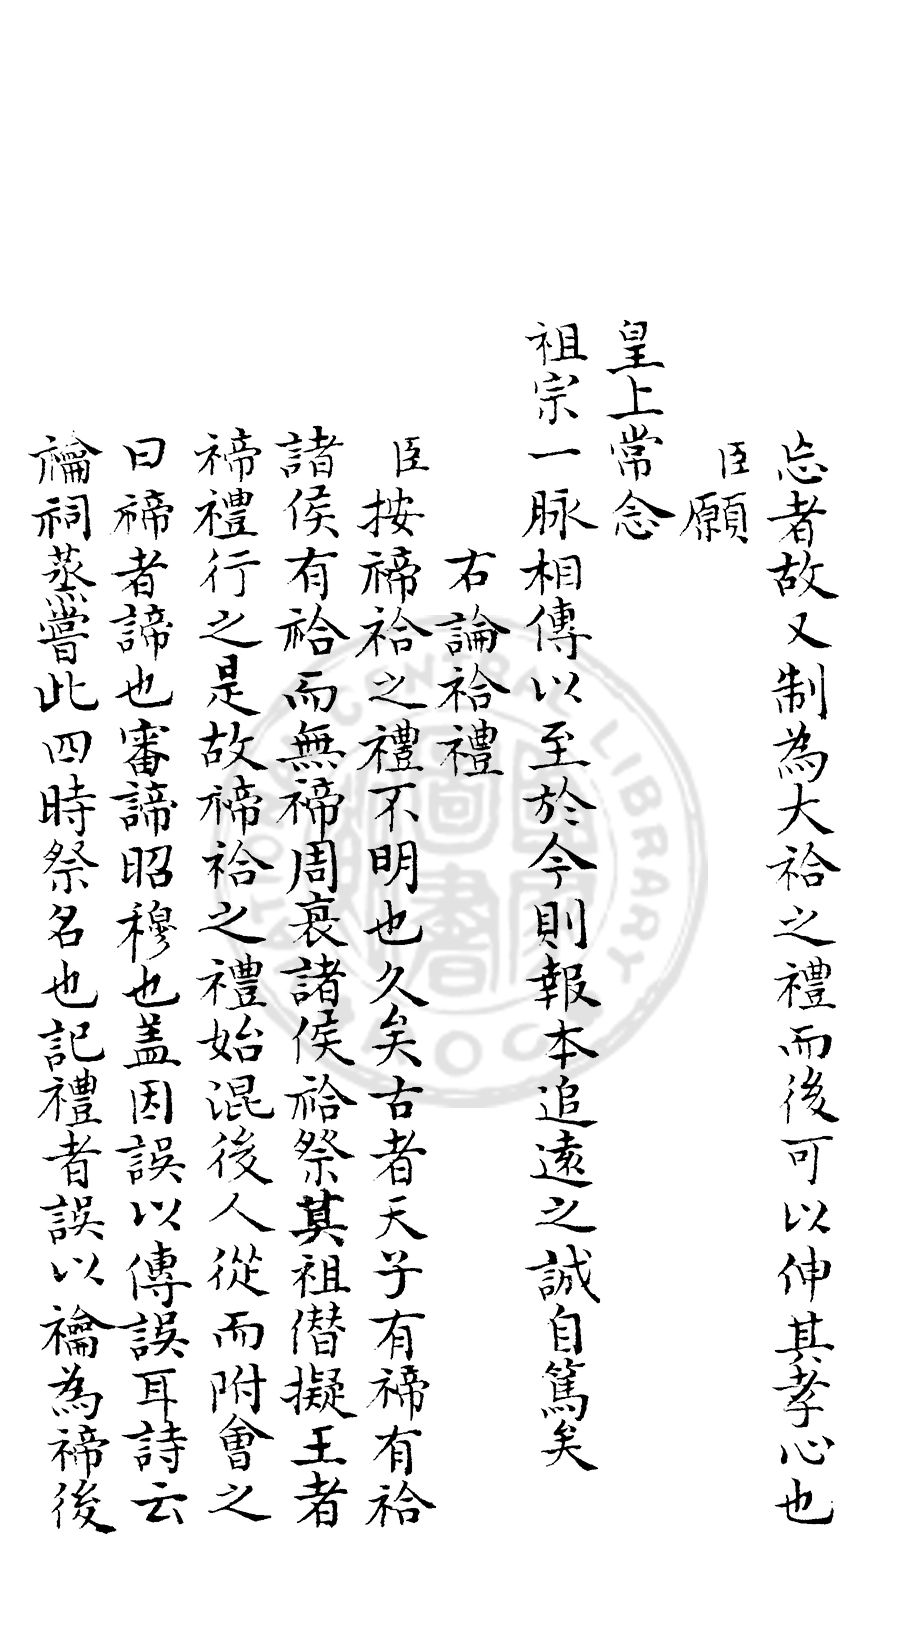 忘者故又制為大祫之禮而後可以伸其孝心也
臣願
皇上常念
祖宗一脉相傳以至於今則報本追遠之誠自篤矣
右論祫禮
臣按禘祫之禮不明也久矣古者天子有禘有祫
諸侯有祫而無禘周衰諸侯祫祭其祖僭擬王者
禘禮行之是故禘祫之禮始混後人從而附會之
曰禘者諦也審諦昭穆也盖因誤以傳誤耳詩云
禴祠蒸嘗此四時祭名也記禮者誤以禴為禘後
CENTRAL LIBRARY